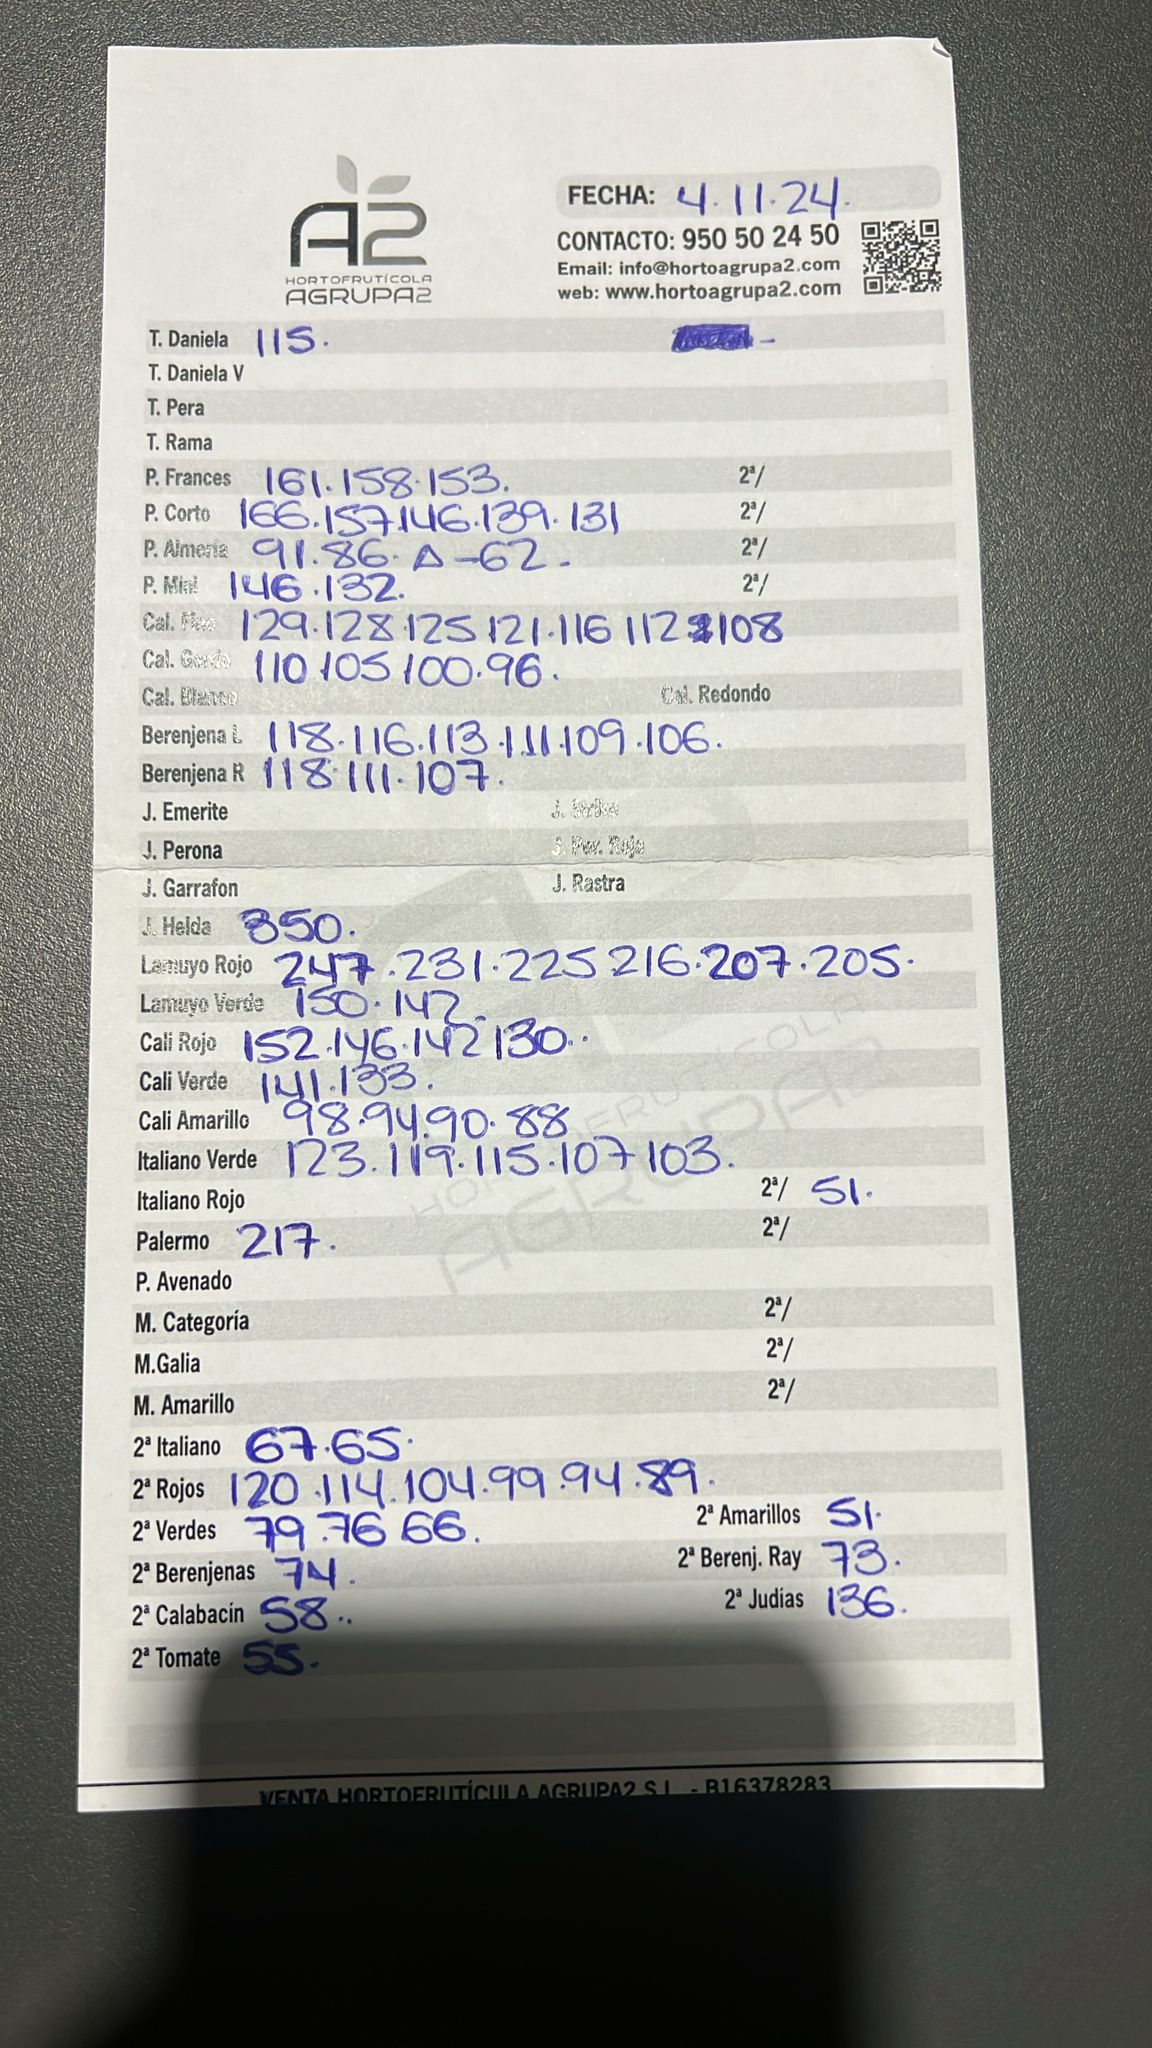 A2
HORTOFRUTÍCOLA
AGRUPA2
FECHA: 4.11.24.
CONTACTO: 950 50 24 50
Email: info@hortoagrupa2.com
web: www.hortoagrupa2.com
T. Daniela 115.
T. Daniela V
T. Pera
T. Rama
P. Frances 161.158.153. 2ª/
P. Corto 166.157.146.139.131 2ª/
P. Almeria 91.86. Δ-62. 2ª/
P. Mini 146.132. 2ª/
Cal. Fino 129.128.125 121.116 112 108
Cal. Gordo 110 105 100.96.
Cal. Blanco Cal. Redondo
Berenjena L 118.116.113.111.109.106.
Berenjena R 118.111.107.
J. Emerite J. Strike
J. Perona J. Per. Roja
J. Garrafon J. Rastra
J. Helda 350.
Lamuyo Rojo 247.231.225 216.207.205.
Lamuyo Verde 150.142.
Cali Rojo 152.146.142 130..
Cali Verde 141.133.
Cali Amarillo 98.94.90.88
Italiano Verde 123.119.115.107 103.
Italiano Rojo 2ª/ 51.
Palermo 217. 2ª/
P. Avenado
M. Categoría 2ª/
M.Galia 2ª/
M. Amarillo 2ª/
2ª Italiano 67.65.
2ª Rojos 120.114.104.99.94.89.
2ª Verdes 79.76 66. 2ª Amarillos 51.
2ª Berenjenas 74. 2ª Berenj. Ray 73.
2ª Calabacín 58.. 2ª Judías 136.
2ª Tomate 55.
VENTA HORTOFRUTÍCULA AGRUPA2 S.L. - B16378283
HORTOFRUTÍCOLA
AGRUPA2